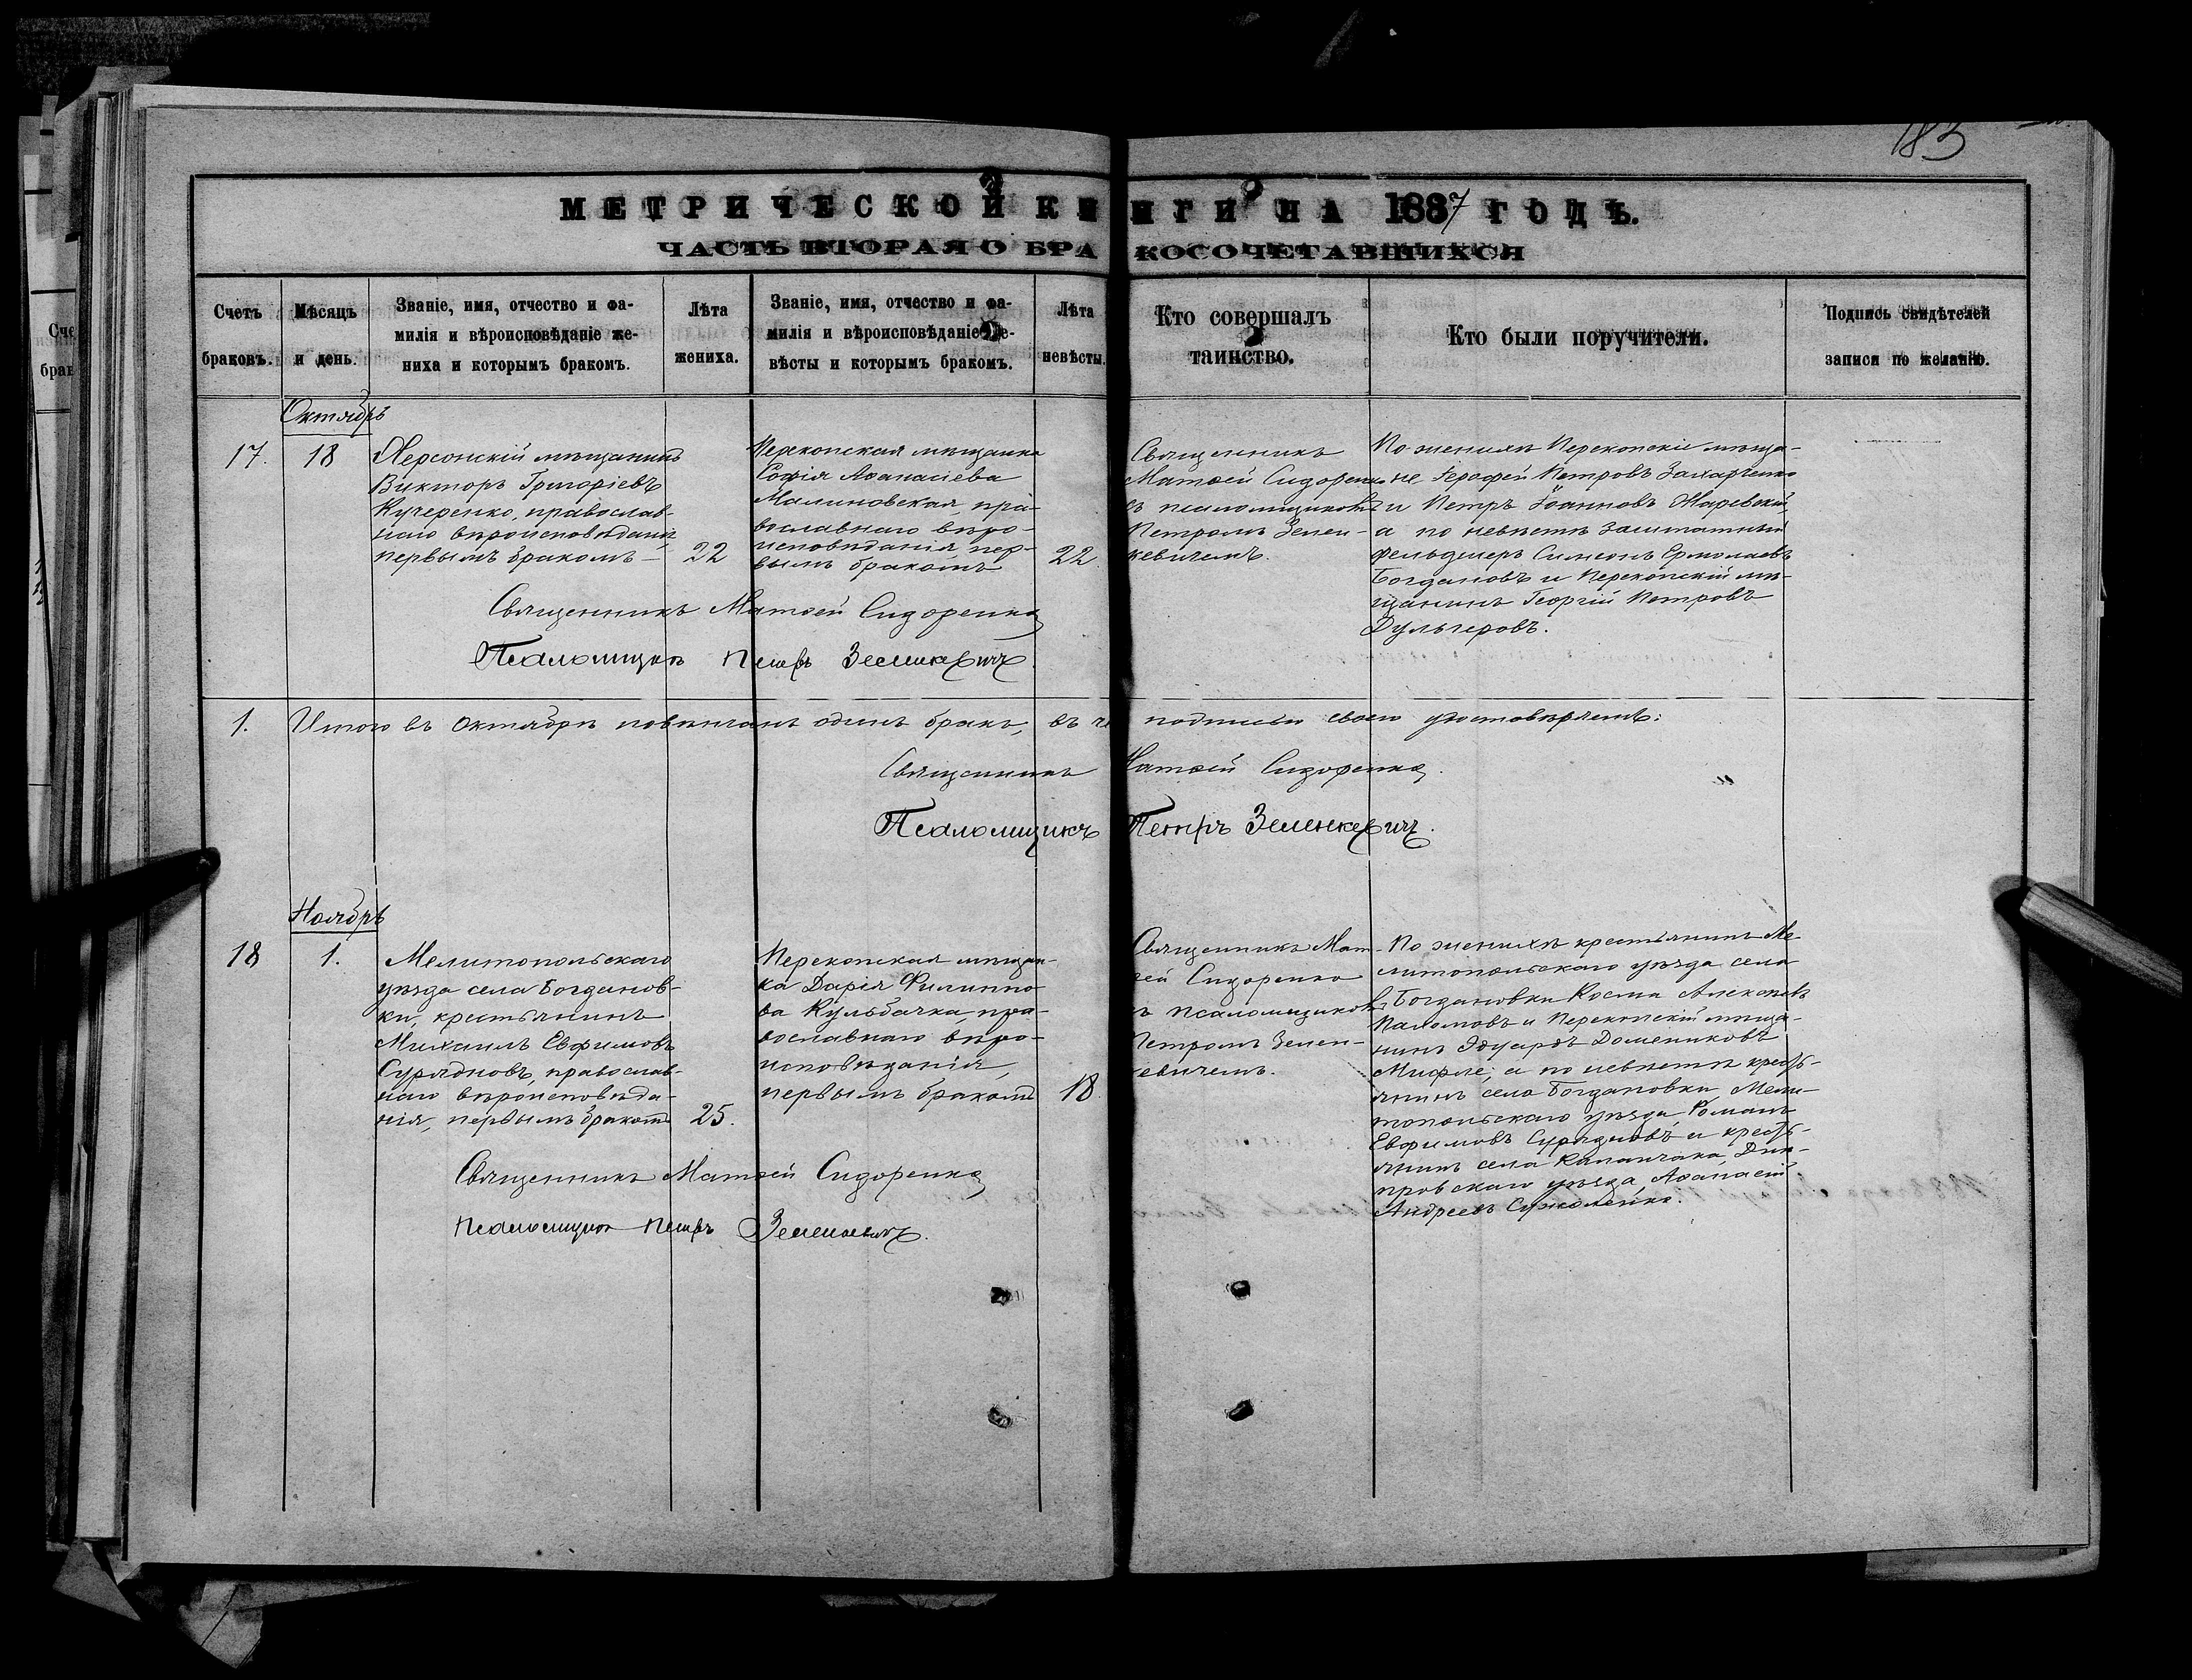 183
МЕТРИЧЕСКОЙ КНИГИ НА 1887 ГОДЪ.
ЧАСТЬ ВТОРАЯ О БРАКОСОЧЕТАВШИХСЯ
Счетъ
браковъ.
Мѣсяцъ
и день.
Званіе, имя, отчество и фа-
милія и вѣроисповѣданіе же-
ниха и которымъ бракомъ.
Лѣта
жениха.
Званіе, имя, отчество и фа-
милія и вѣроисповѣданіе не-
вѣсты и которымъ бракомъ.
Лѣта
невѣсты.
Кто совершалъ
таинство.
Кто были поручители.
Подпись свидѣтелей
записи по желанію.
Октябрь
17.
18
Херсонскій мѣщанинъ
Викторъ Григоріевъ
Кучеренко, православ-
наго вѣроисповѣданія,
первымъ бракомъ —
22
Перекопская мѣщанка
Софія Аѳанасіева
Малиновская, пра-
вославнаго вѣро-
исповѣданія, пер-
вымъ бракомъ
22
Священникъ
Матѳей Сидоренко
съ псаломщикомъ
Петромъ Зелен-
кевичемъ.
По женихѣ Перекопскіе мѣща-
не Іероѳей Петровъ Захарченко
и Петръ Іоанновъ Жаревскій,
а по невѣстѣ заштатный
фельдшеръ Симеонъ Ермолаевъ
Богдановъ и Перекопскій мѣ-
щанинъ Георгій Петровъ
Дульгеровъ.
Священникъ Матѳей Сидоренко
Псаломщикъ Петръ Зеленкевичъ
1.
Итого въ Октябрѣ повѣнчанъ одинъ бракъ, въ че подписью своею удостовѣряемъ:
Священникъ Матѳей Сидоренко.
Псаломщикъ Петръ Зеленкевичъ.
Ноябрь
18
1.
Мелитопольскаго
уѣзда села Богданов-
ки, крестьянинъ
Михаилъ Евфимовъ
Суряднов, православ-
наго вѣроисповѣда-
нія, первымъ бракомъ
25.
Перекопская мѣщан-
ка Дарія Филиппо-
ва Кульбачка, пра-
вославнаго вѣро-
исповѣданія,
первымъ бракомъ
18
Священникъ Мат-
ѳей Сидоренко
съ псаломщикомъ
Петромъ Зелен-
кевичемъ.
По женихѣ крестьянинъ Ме
литопольскаго уѣзда села
Богдановки Косма Алексѣевъ
и Перекопскій мѣща-
нинъ Эдуардъ Домениковъ
а по невѣстѣ кресть-
янинъ села Богдановки, Мели-
топольскаго уѣзда Романъ
Евфимовъ Суряднов и кресть-
янинъ села Каланчака, Днѣ-
провскаго уѣзда, Аѳанасій
Андреевъ
Священникъ Матѳей Сидоренко
Псаломщикъ Петръ Зеленкевичъ.